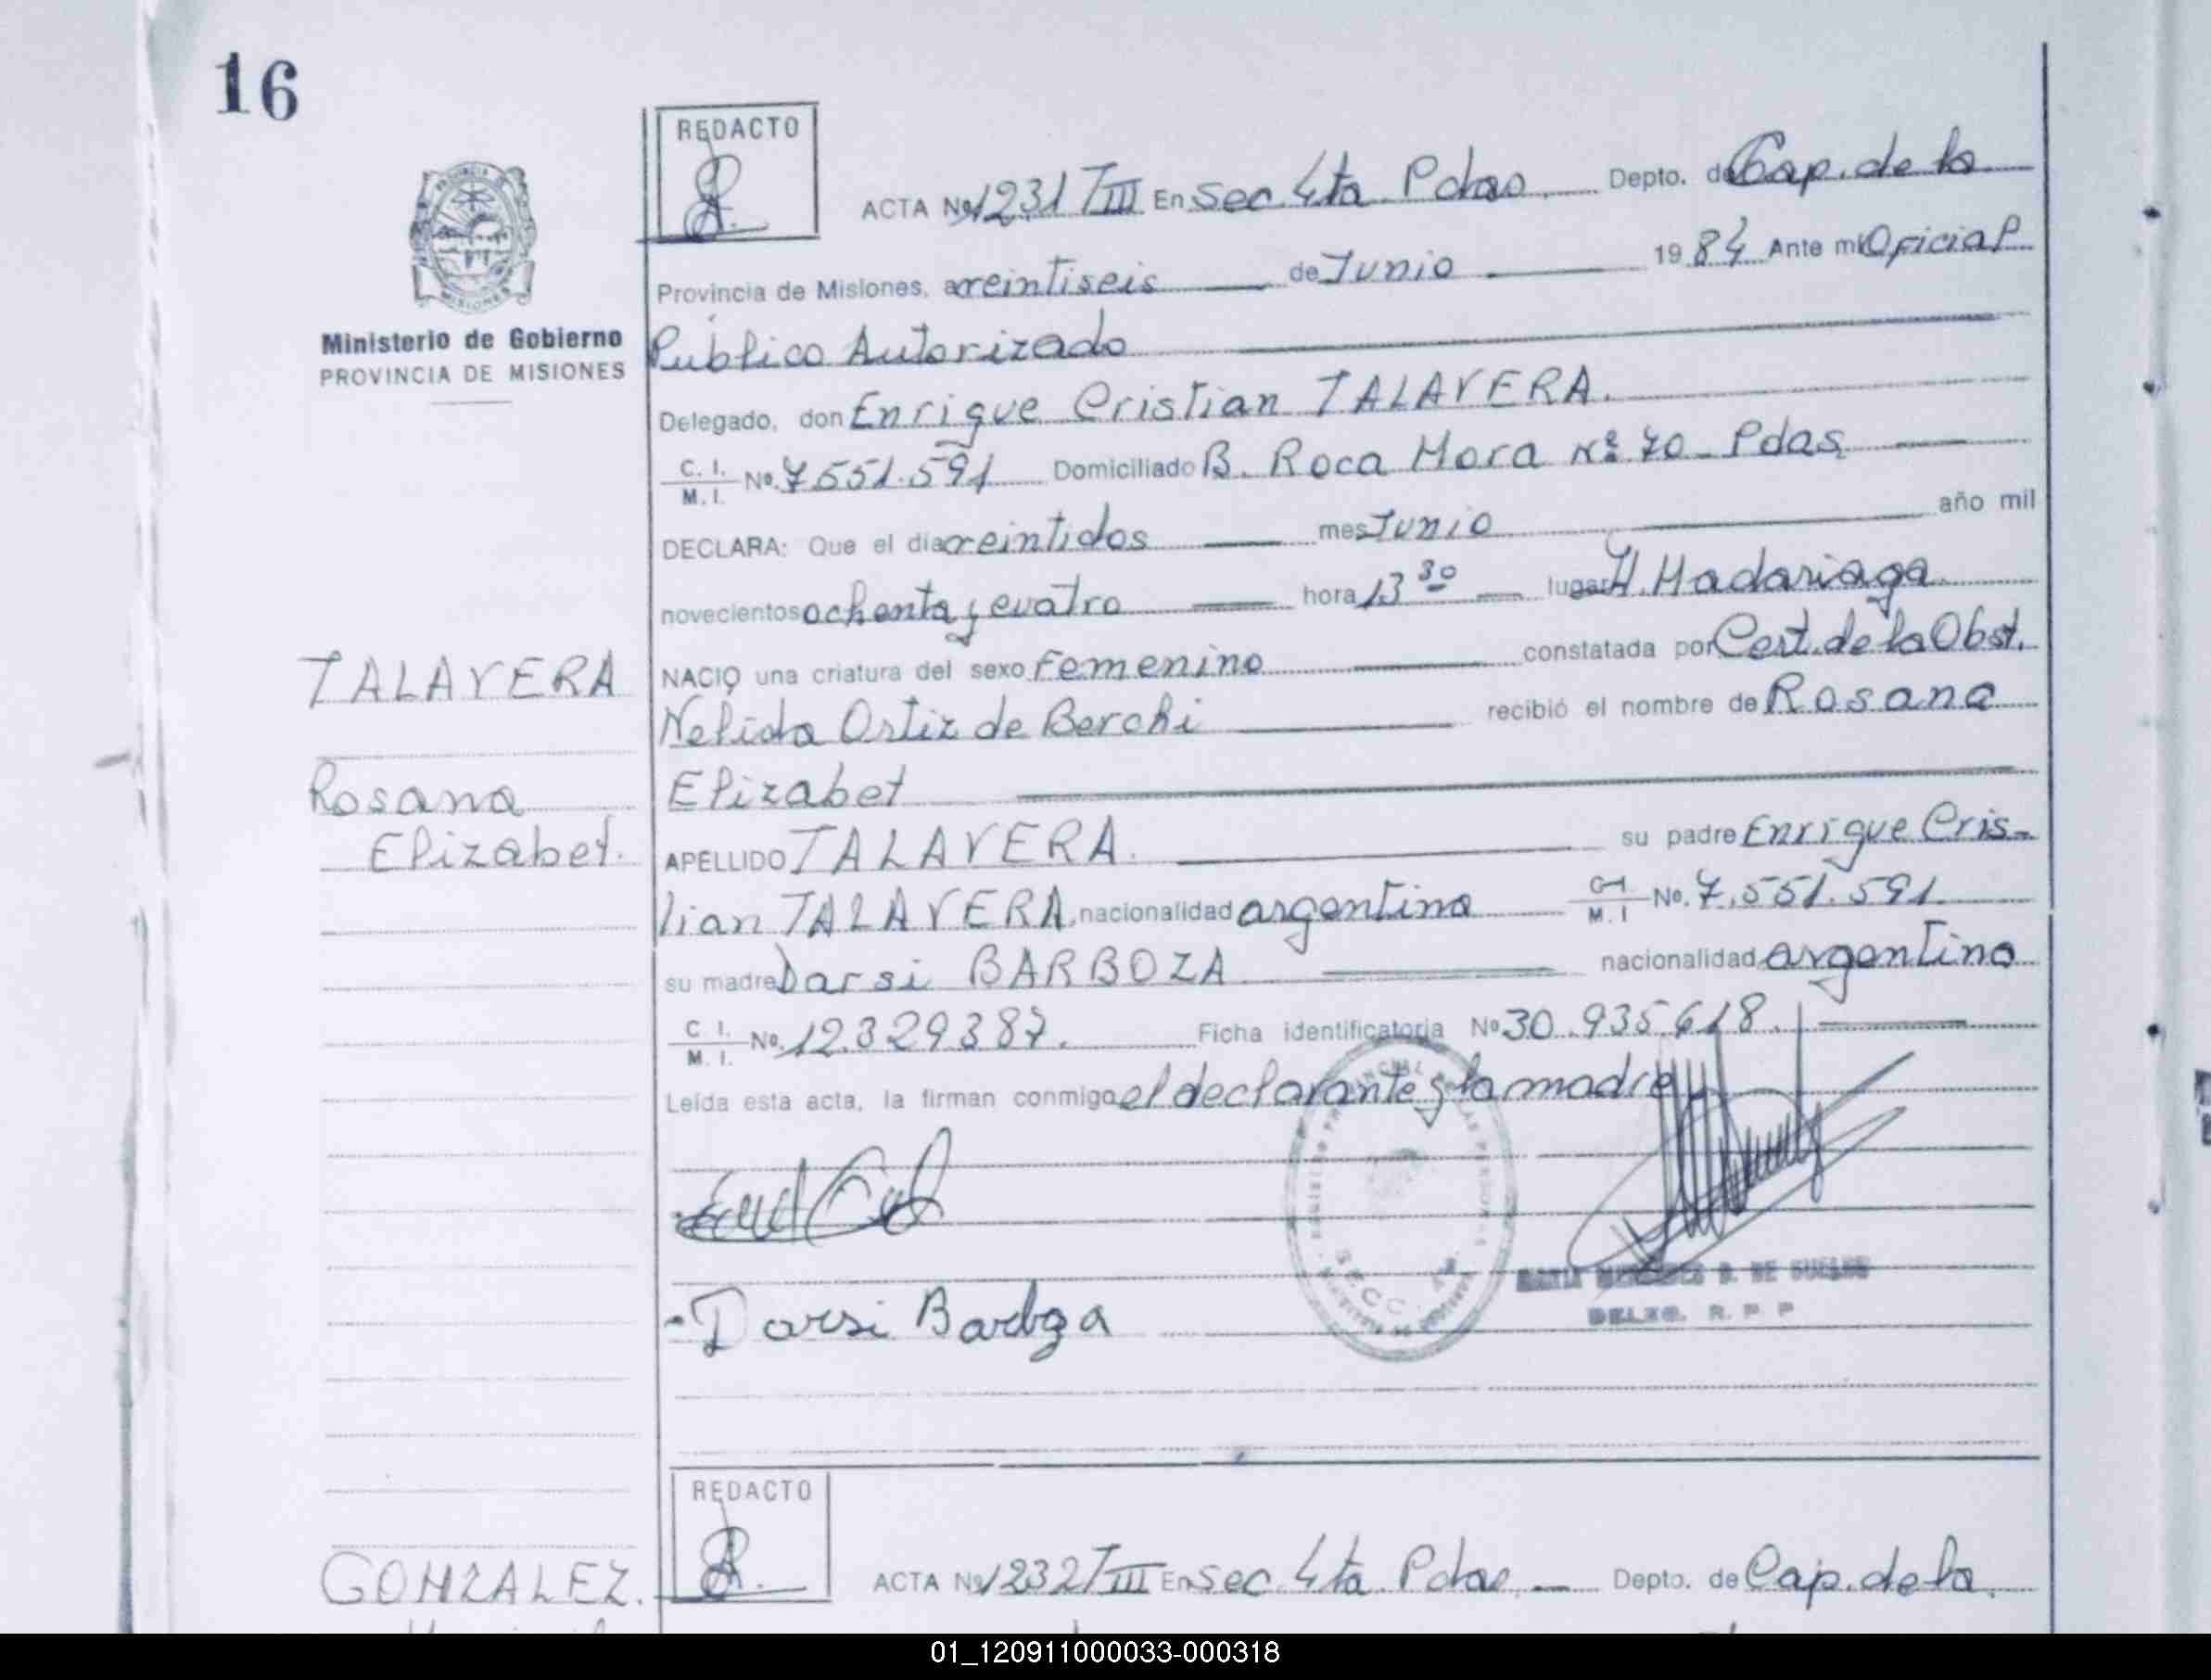 16
REDACTO
ACTA Nº 1231 TIII En Sec. 4ta Pdas. Depto. de Cap. de la
Provincia de Misiones, a veintiseis de Junio 1984 Ante mi Oficial
Ministerio de Gobierno
PROVINCIA DE MISIONES
Público Autorizado
Delegado, don Enrique Cristian TALAVERA.
C. I. M. I. Nº. 7.551.591 Domiciliado B. Roca Mora Nº 70 - Pdas
DECLARA: Que el dia veintidos mes Junio año mil
novecientos ochenta y cuatro hora 13 30 lugar H. Madariaga
TALAVERA
NACIO una criatura del sexo Femenino constatada por Cert. de la Obst.
Nelida Ortiz de Berchi recibió el nombre de Rosana
Rosana
Elizabet
Elizabet.
APELLIDO TALAVERA. su padre Enrique Cris-
tian TALAVERA. nacionalidad argentina C-I M. I No. 7.551.591.
su madre Darsi BARBOZA nacionalidad argentina
C. I. M. I. No. 12.329387. Ficha identificatoria Nº 30.935.618.
Leída esta acta, la firman conmigo el declarante y la madre
DE LAS PERSONAS
SECC. 4ta.
DELEG. R. P. P
- Darsi Barboza
REDACTO
GONZALEZ.
ACTA Nº 1232 TIII En Sec. 4ta. Pdas. Depto. de Cap. de la
01_120911000033-000318